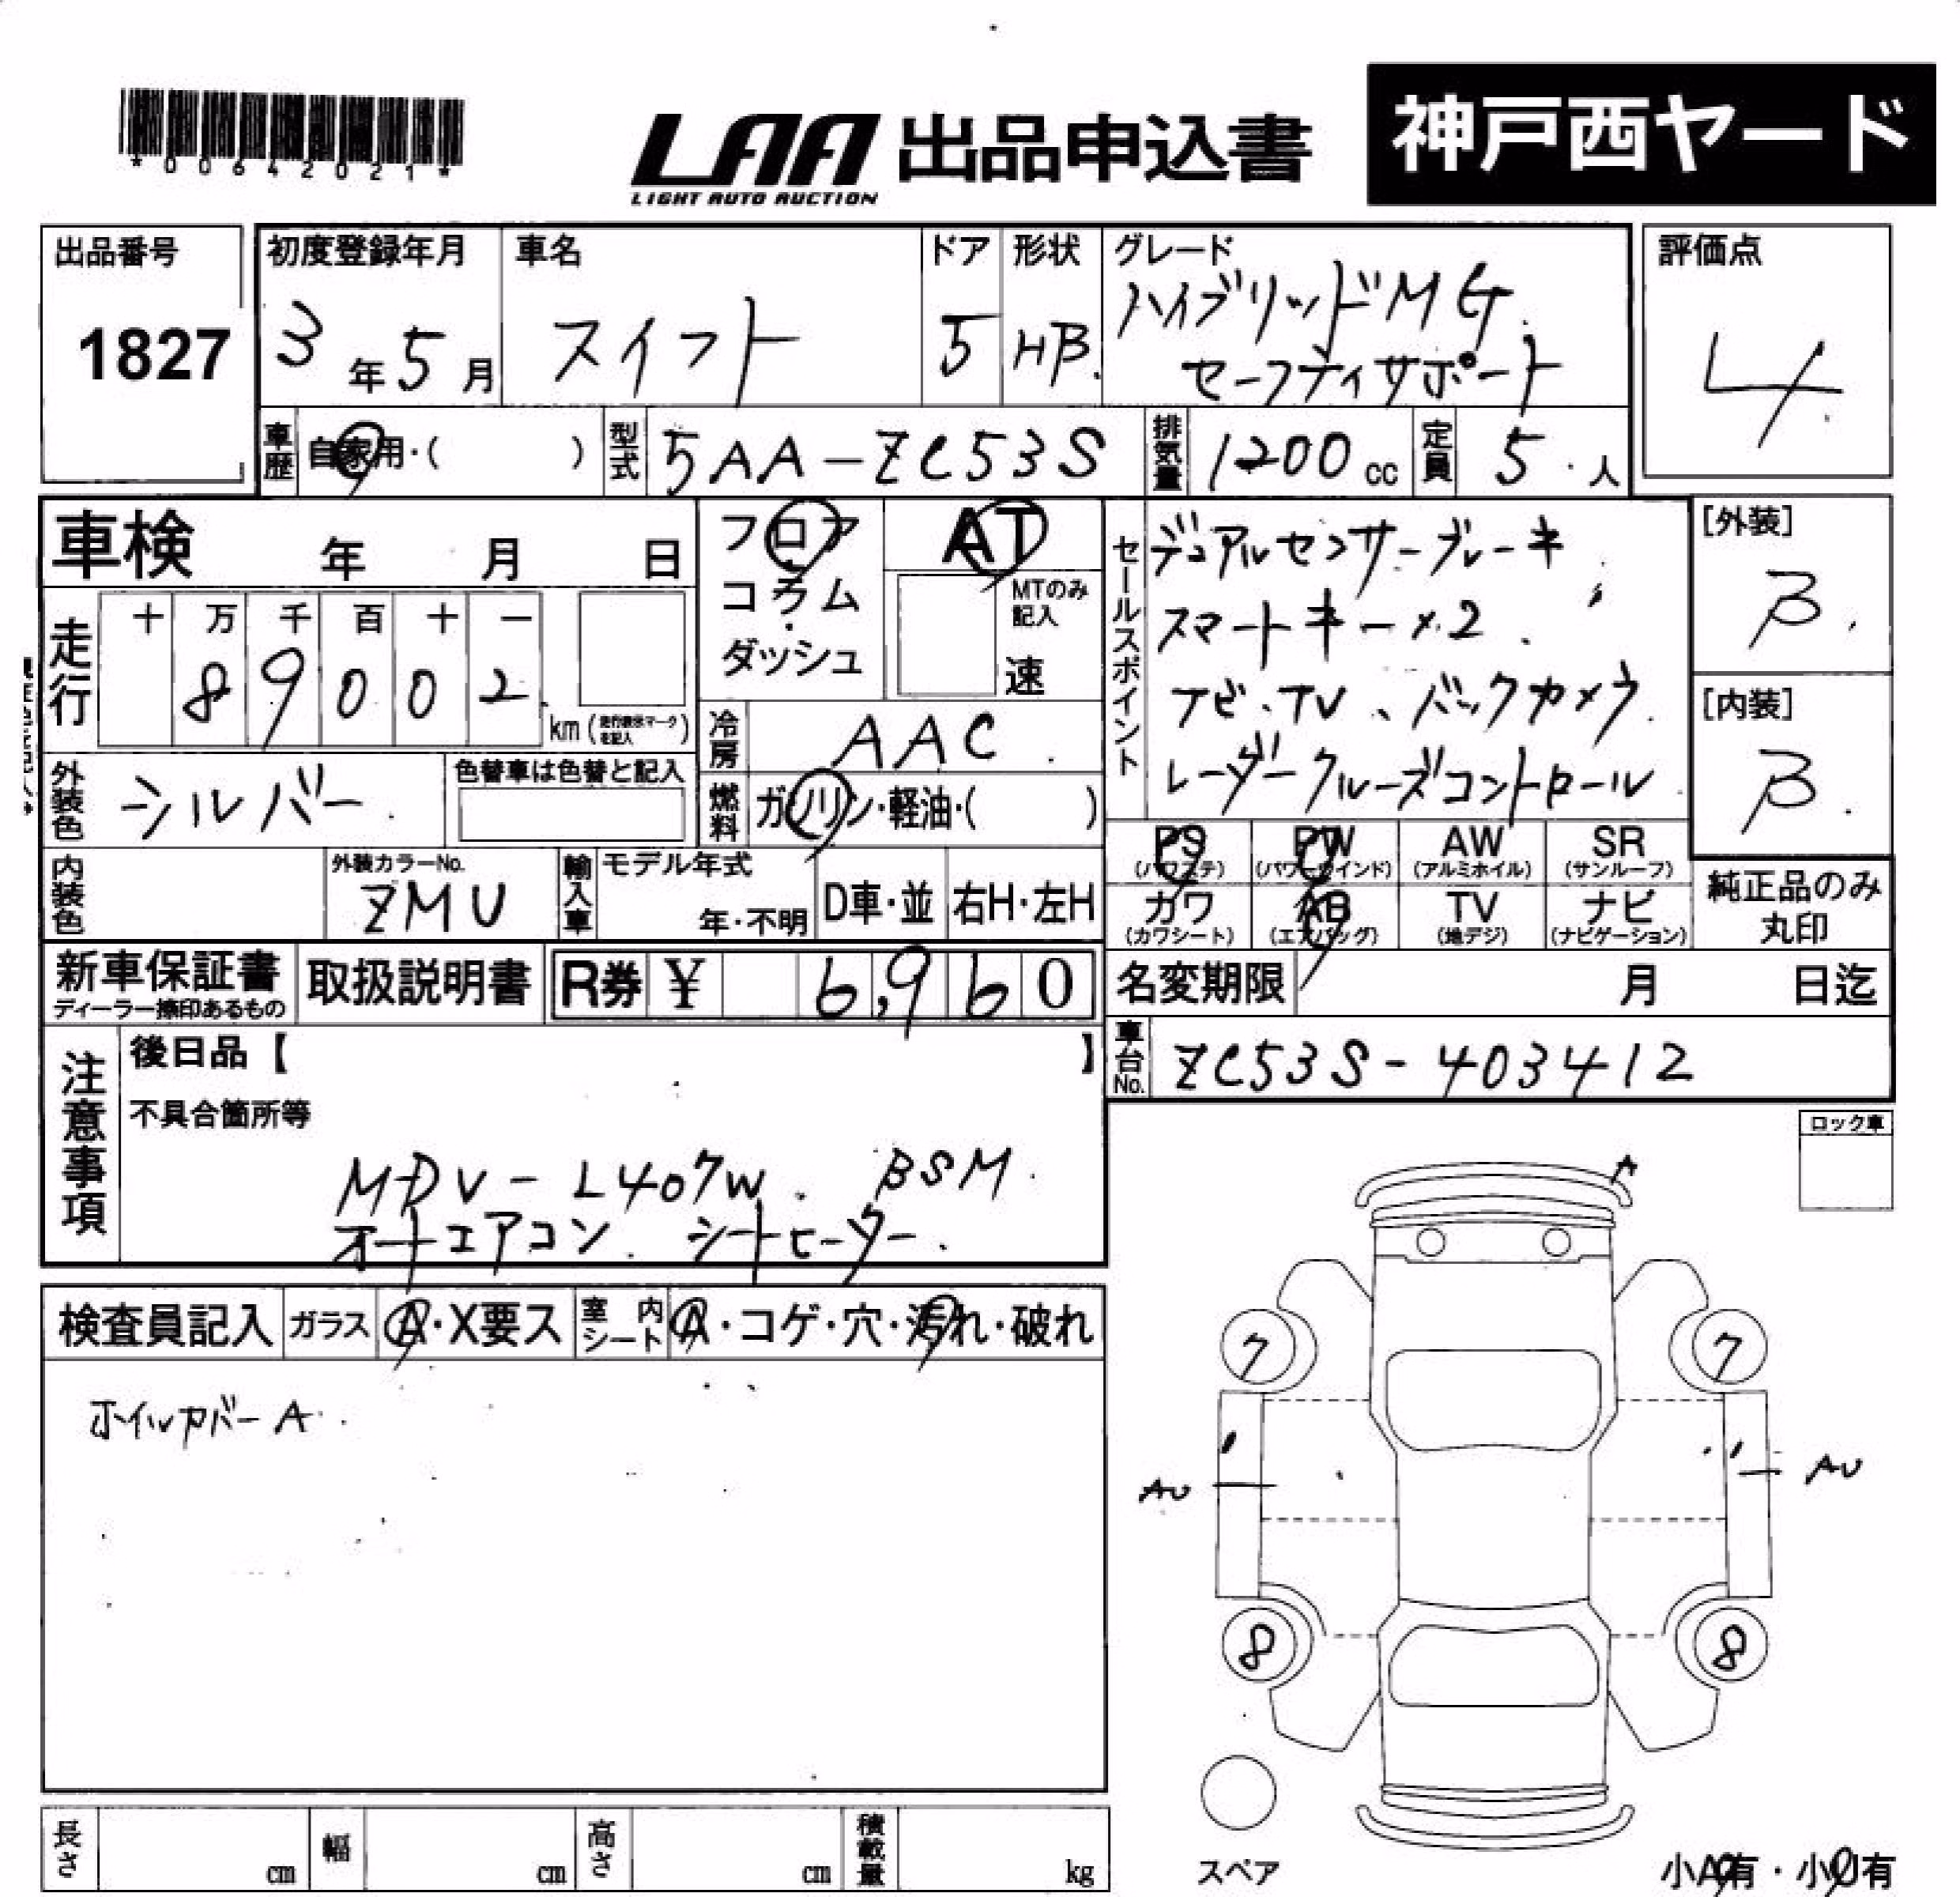 *00642021*
LAA 出品申込書
LIGHT AUTO AUCTION
神戸西ヤード
出品番号
1827
初度登録年月
3年5月
車名
スイフト
ドア
5
形状
HB
グレード
ハイブリッドMG
セーフティサポート
評価点
4
車歴 自家用・( )
型式 5AA-ZC53S
排気量 1200cc
定員 5人
車検 年 月 日
フロア
コラム
ダッシュ
AT
MTのみ記入
速
セールスポイント
デュアルセンサーブレーキ
スマートキー×2
ナビ、TV、バックカメラ
レーダークルーズコントロール
[外装]
B
[内装]
B
走行
十 万 千 百 十 一
8 9 0 0 2
km (走行表示マークを記入)
冷房 AAC
外装色 シルバー
色替車は色替と記入
燃料 ガソリン・軽油・( )
PS (パワステ)
PW (パワーウインド)
AW (アルミホイル)
SR (サンルーフ)
カワ (カワシート)
AB (エアバッグ)
TV (地デジ)
ナビ (ナビゲーション)
純正品のみ
丸印
内装色
外装カラーNo.
ZMU
輸入車
モデル年式
年・不明
D車・並
右H・左H
新車保証書
ディーラー捺印あるもの
取扱説明書
R券 ¥ 6,960
名変期限 月 日迄
車台No. ZC53S-403412
注意事項
後日品【 】
不具合箇所等
MDV-L407W BSM
オートエアコン シートヒーター
ロック車
検査員記入
ガラス A・X要ス
室内シート A・コゲ・穴・汚れ・破れ
ホイルカバーA
A
7 7
AU AU
8 8
スペア
小A有・小U有
長さ cm
幅 cm
高さ cm
積載量 kg